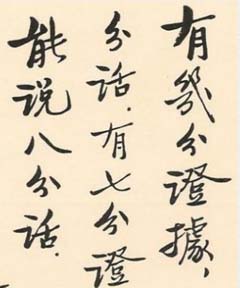 有幾分證據,
分话.有七分證
能说八分话.